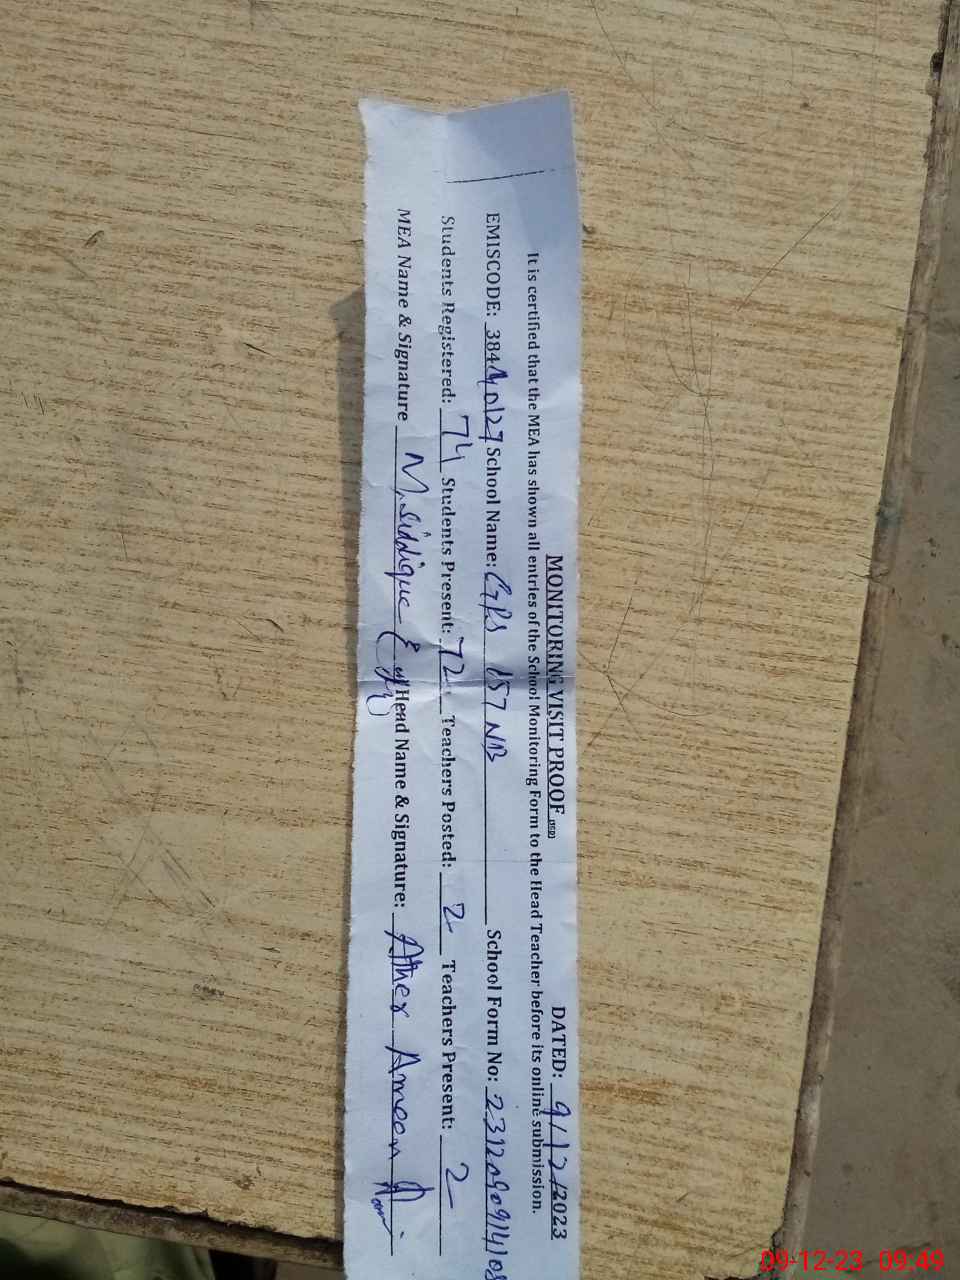 MONITORING VISIT PROOF DATED: 9/12/2023
It is certified that the MEA has shown all entries of the School Monitoring Form to the Head Teacher before its online submission.
EMISCODE: 38440127 School Name: GPS 157 NB School Form No: 231209091410
Students Registered: 74 Students Present: 72 Teachers Posted: 2 Teachers Present: 2
MEA Name & Signature M. Siddique Head Name & Signature: Ather Ameen
09-12-23 09:49